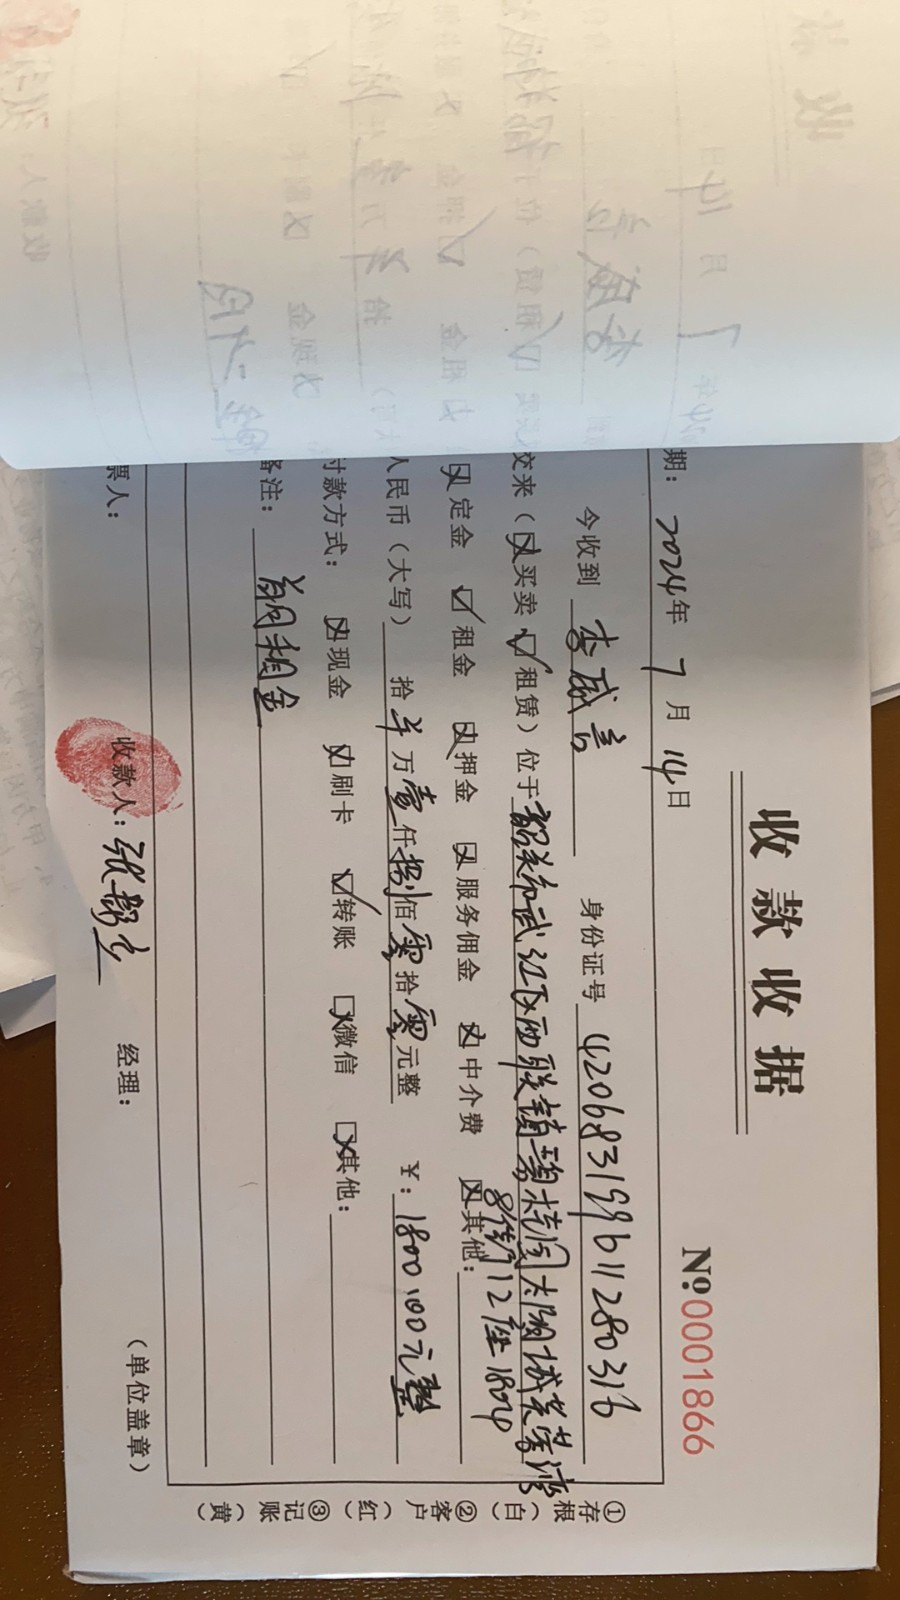 收款收据
№0001866
期：2024年7月14日
今收到 李威 身份证号 420683199611280316
交来（☒买卖 ☑租赁）位于韶关市武江区西联镇碧桂园太阳城芙蓉湾
8街12座1804
☒定金 ☑租金 ☒押金 ☒服务佣金 ☒中介费 ☒其他：
人民币（大写） 拾 万壹仟捌佰零拾零元整 ￥：1800.00元整
付款方式： ☒现金 ☒刷卡 ☑转账 ☒微信 ☒其他：
备注： 首月租金
票人： 收款人：张 经理： （单位盖章）
①存根（白） ②客户（红） ③记账（黄）